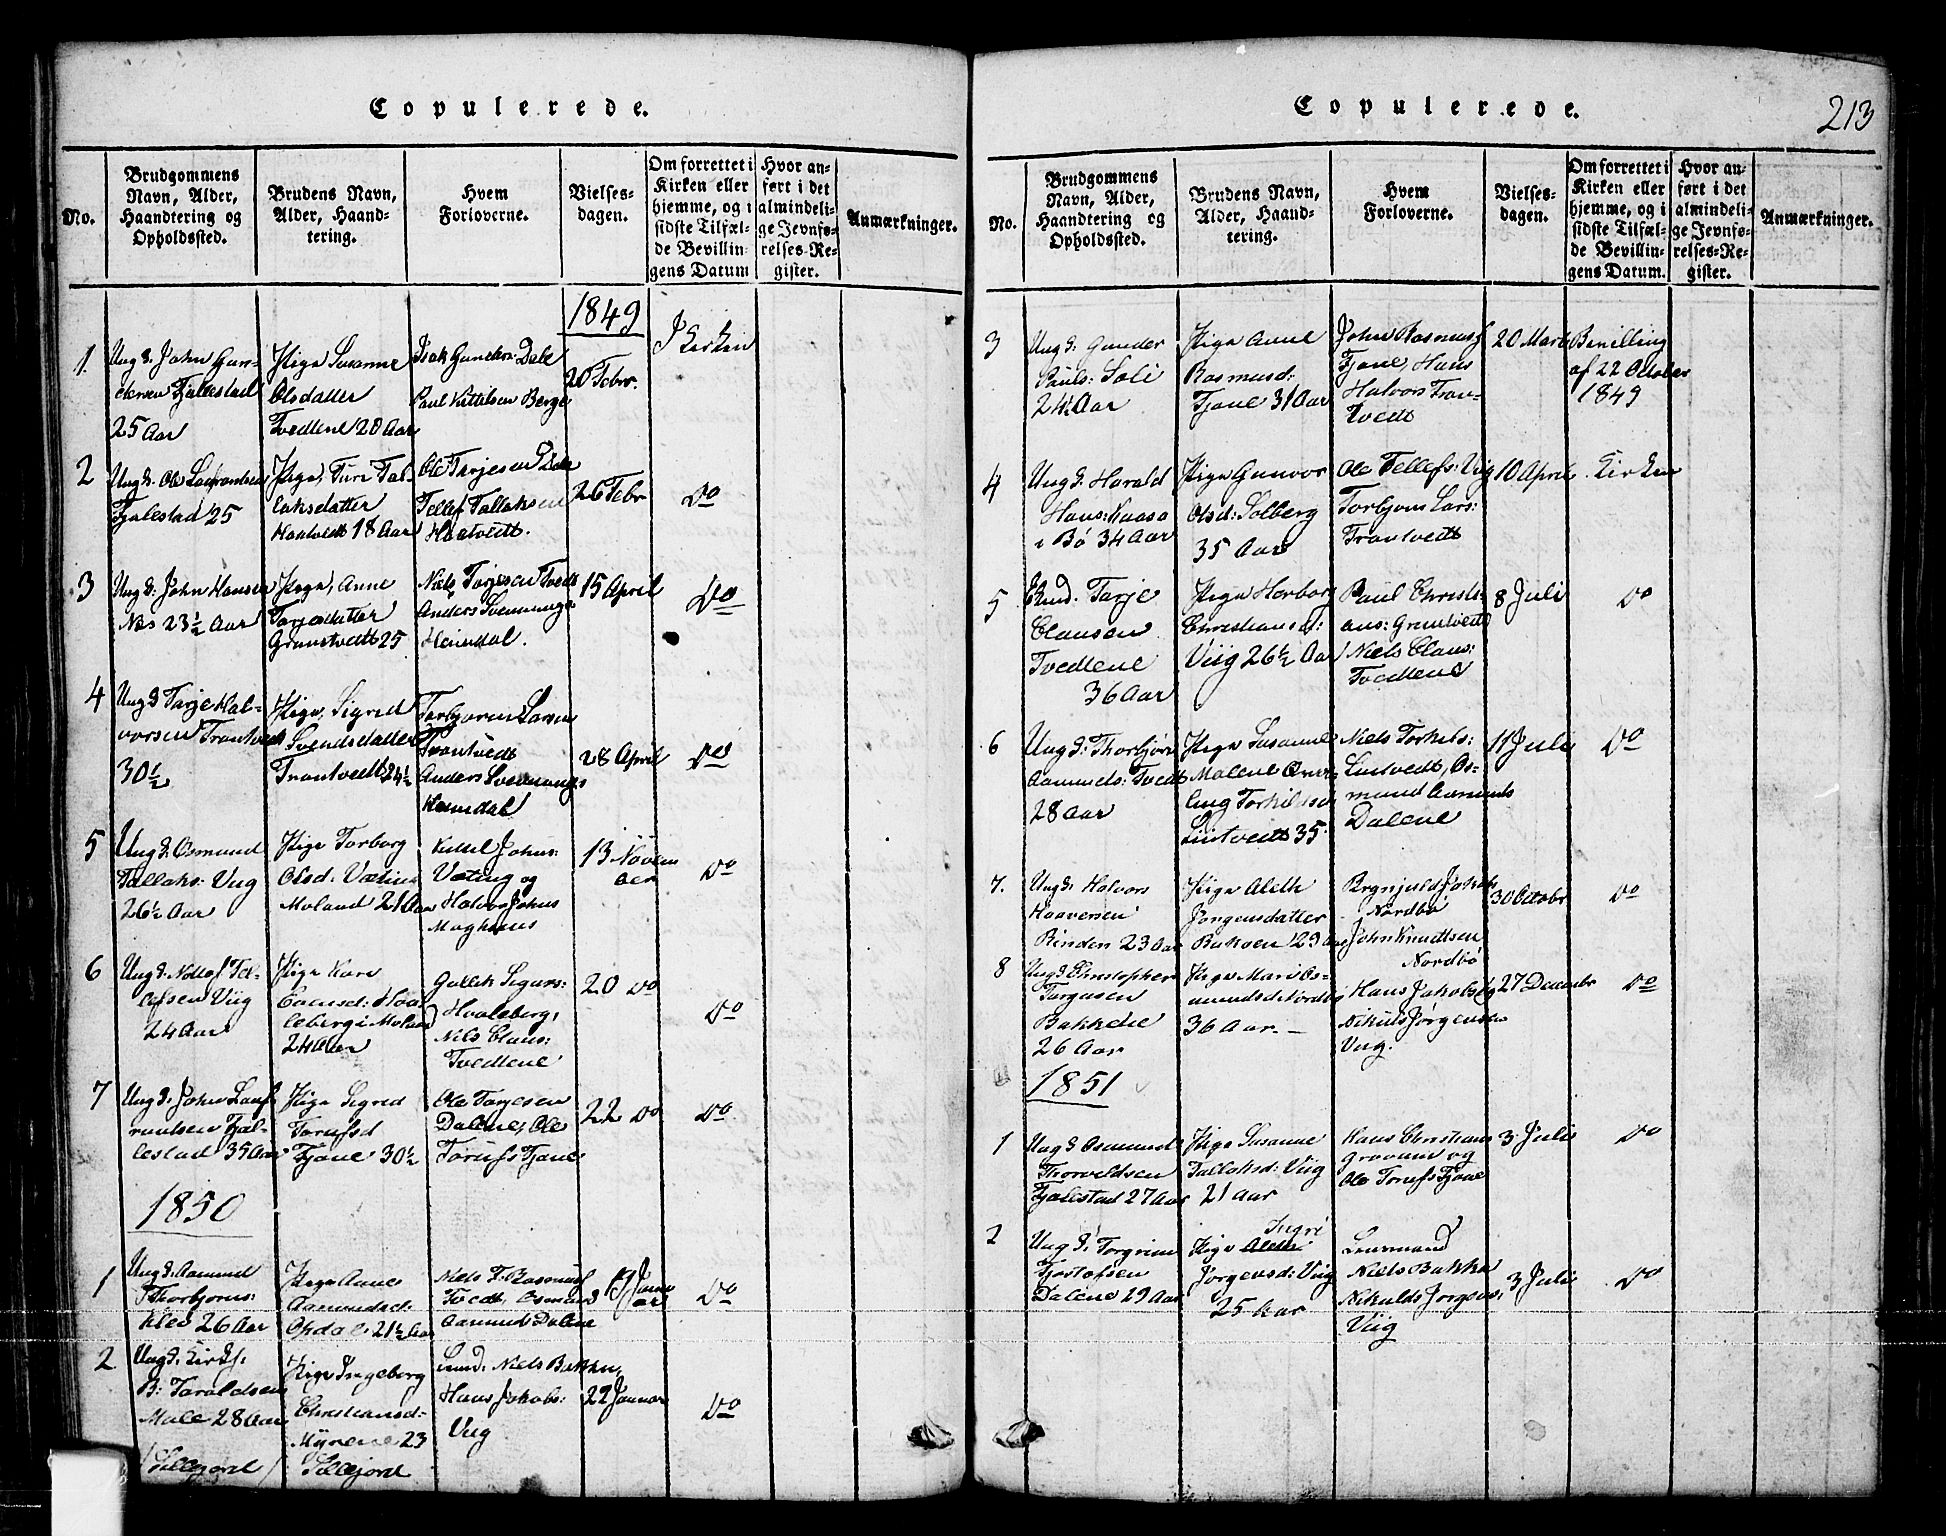 Copulerede.
No.
Brudgommens Navn, Alder, Haandtering og Opholdssted.
Brudens Navn, Alder, Haandtering.
Hvem Forloverne.
Vielsesdagen.
Om forrettet i Kirken eller hjemme, og i sidste Tilfælde Bevillingens Datum
Hvor anført i det almindelige Jevnførelses-Register.
Anmærkninger.
1849
1.
Ung K. John Gun-
dersen Fjalestad
25 Aar
Pige Susanne
Olsdatter
Tvedtene 20 Aar
Isak Gunders: Dale
Paul Kittilsen Berge
20 Febr.
I Kirken
2
Fjalestad 25
Pige, Turi Tal-
laksdatter
Haatvedt 18 Aar
Ole Tarjesen
Tellef Tallaksen
Haatvedt.
26 Febr
Do
3
Ung K. John Hansen
Næs 23½ Aar
Pige, Anne
Tarjesdatter
Granstvedt 25
Niels Torjesen Tvedt
Anders Svennungs
Heimdal.
15 April
Do
4
Ung K Tarje Hal-
vorsen Trantvedt
30½
Pige, Sigrid
Svendsdatter
Trantvedt 24½
Torbjøren Larsen
Trantvedt
Anders Svennungs
Heimdal
28 April
Do
5
Ung K. Osmund
Tallaks: Viig
26½ Aar
Pige Torborg
Olsd:
Moland 21 Aar
Kittel Johns:
og
Halvor Johns
13 Novem
ber
Do
6
lefsen Viig
24 Aar
Pige Kari
24 Aar
Gullik Sigurs:
Haaleberg,
Nils Claus:
Tvedtene
20 Do
Do
7
Ung K. John Lauf-
rantsen Fjal-
lestad 35 Aar
Pige Sigrid
Torufsd
Fjane 30½
Ole Tarjesen
Dalene, Ole
Torufs Fjane
22 Do
Do
1850
1
Ung K. Aamund
Thorbjørns:
Klev 26 Aar
Pige Anne
Aamundsd:
Opdal 21½ Aar
Niels T. Rasmus
Tvedt, Osmund
Aamunds Dalene
Do
2
B: Taraldsen
Mole 28 Aar
(Sillejord)
Pige Ingeborg
Christiansd-
Myrene 23
Sillejord
Niels Bakken,
Hans Jakobs:
Viig
22 Januar
Do
Copulerede.
213
No.
Brudgommens Navn, Alder, Haandtering og Opholdssted.
Brudens Navn, Alder, Haandtering.
Hvem Forloverne.
Vielsesdagen.
Om forrettet i Kirken eller hjemme, og i sidste Tilfælde Bevillingens Datum.
Hvor anført i det almindelige Jevnførelses-Register.
Anmærkninger.
3
Ung K: Gunder
Pauls: Soli
24½ Aar
Pige Anne
Rasmusd:
Fjane 31 Aar
John Rasmus
Fjane, Hans
Halvors Tran-
tvedt
20 Marts
Bevilling
af 22 October
1849
4
Ung K. Harald
Hans: Kaasa
i Bø 34 Aar
Pige Gunvor
Olsd: Solberg
35 Aar
Ole Tellefs: Viig
Torbjørn Lars:
Trantvedt
10 April
Kirken
5
Tarje
Clausen
Tvedtene
36 Aar
Pige Horborg
Christiansd:
Viig 26½ Aar
Paul Christi-
ans: Grantvedt
Niels Claus:
Tvedtene
8 Juli
Do
6
Ung K: Thorbjørn
Aamunds: Tvedt
28 Aar
Pige Susanne
Malene
Torkildsd
Lintvedt 35
Niels Torkils:
Lintvedt, Os-
mund Aamunds
Dalene
11 Juli
Do
7.
Ung K. Halvor
Haaversen
Rinden 23 Aar
Pige Aleth
Jørgensdatter
Bakken 29 Aar
Brynjuld Jakobs
Nordbø
John Knudtsen
Nordbø
30 Octobr
Do
8
Ung K Christopher
Targusen
Bakkene
26 Aar
Pige Mari Os-
mundsd Nordbø
36 Aar. –
Hans Jakobs
Nikuls Jørgensen
Viig.
27 Decembr
Do
1851
1
Ung K Osmund
Thorvaldsen
Fjalestad 27 Aar
Pige Susanne
Tallaksd: Viig
21 Aar
Hans Christians
og
Ole Torufs Fjane
3 Juli
Do
2
Ung K. Torgrim
Tjostofsen
Dalene 29 Aar
Ingri
Pige Aleth
Jørgensd: Viig
25 Aar
Lensmand
Niels Bakka
Nikulds Jørgens:
Viig
3 Juli
Do